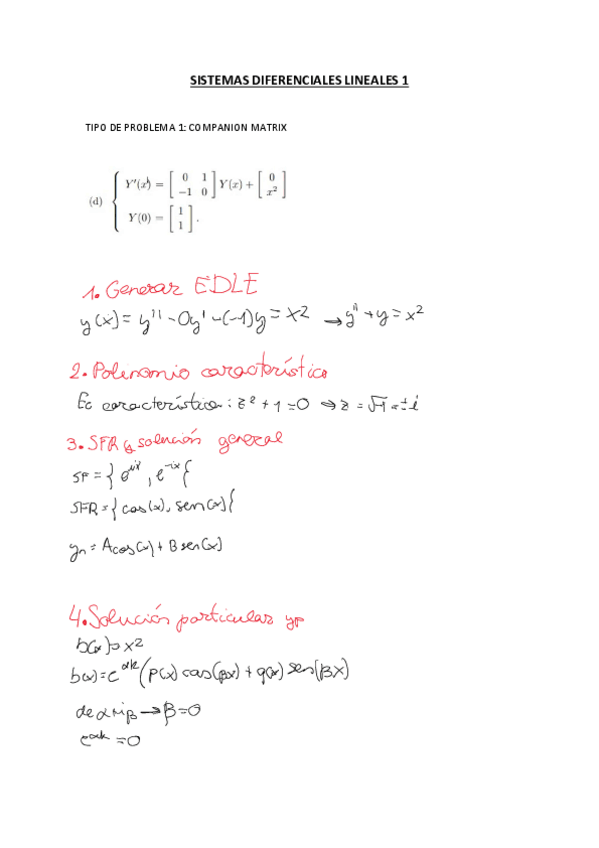 SISTEMAS DIFERENCIALES LINEALES 1
TIPO DE PROBLEMA 1: COMPANION MATRIX
(d) { Y'(x) = [ 0 1 ; -1 0 ] Y(x) + [ 0 ; x² ]
Y(0) = [ 1 ; 1 ].
1. Generar EDLE
y(x) = y'' - 0y' - (-1)y = x2 → y'' + y = x²
2. Polinomio característico
Ec característica: z² + 1 = 0 → z = √-1 = ± i
3. SFR y solución general
SF = { e^ix, e^-ix {
SFR = { cos(x), sen(x) {
yh = A cos(x) + B sen(x)
4. Solución particular yp
b(x) = x²
b(x) = e^αx (p(x) cos(βx) + q(x) sen(βx)
de α+iβ → β = 0
e^αx = 0